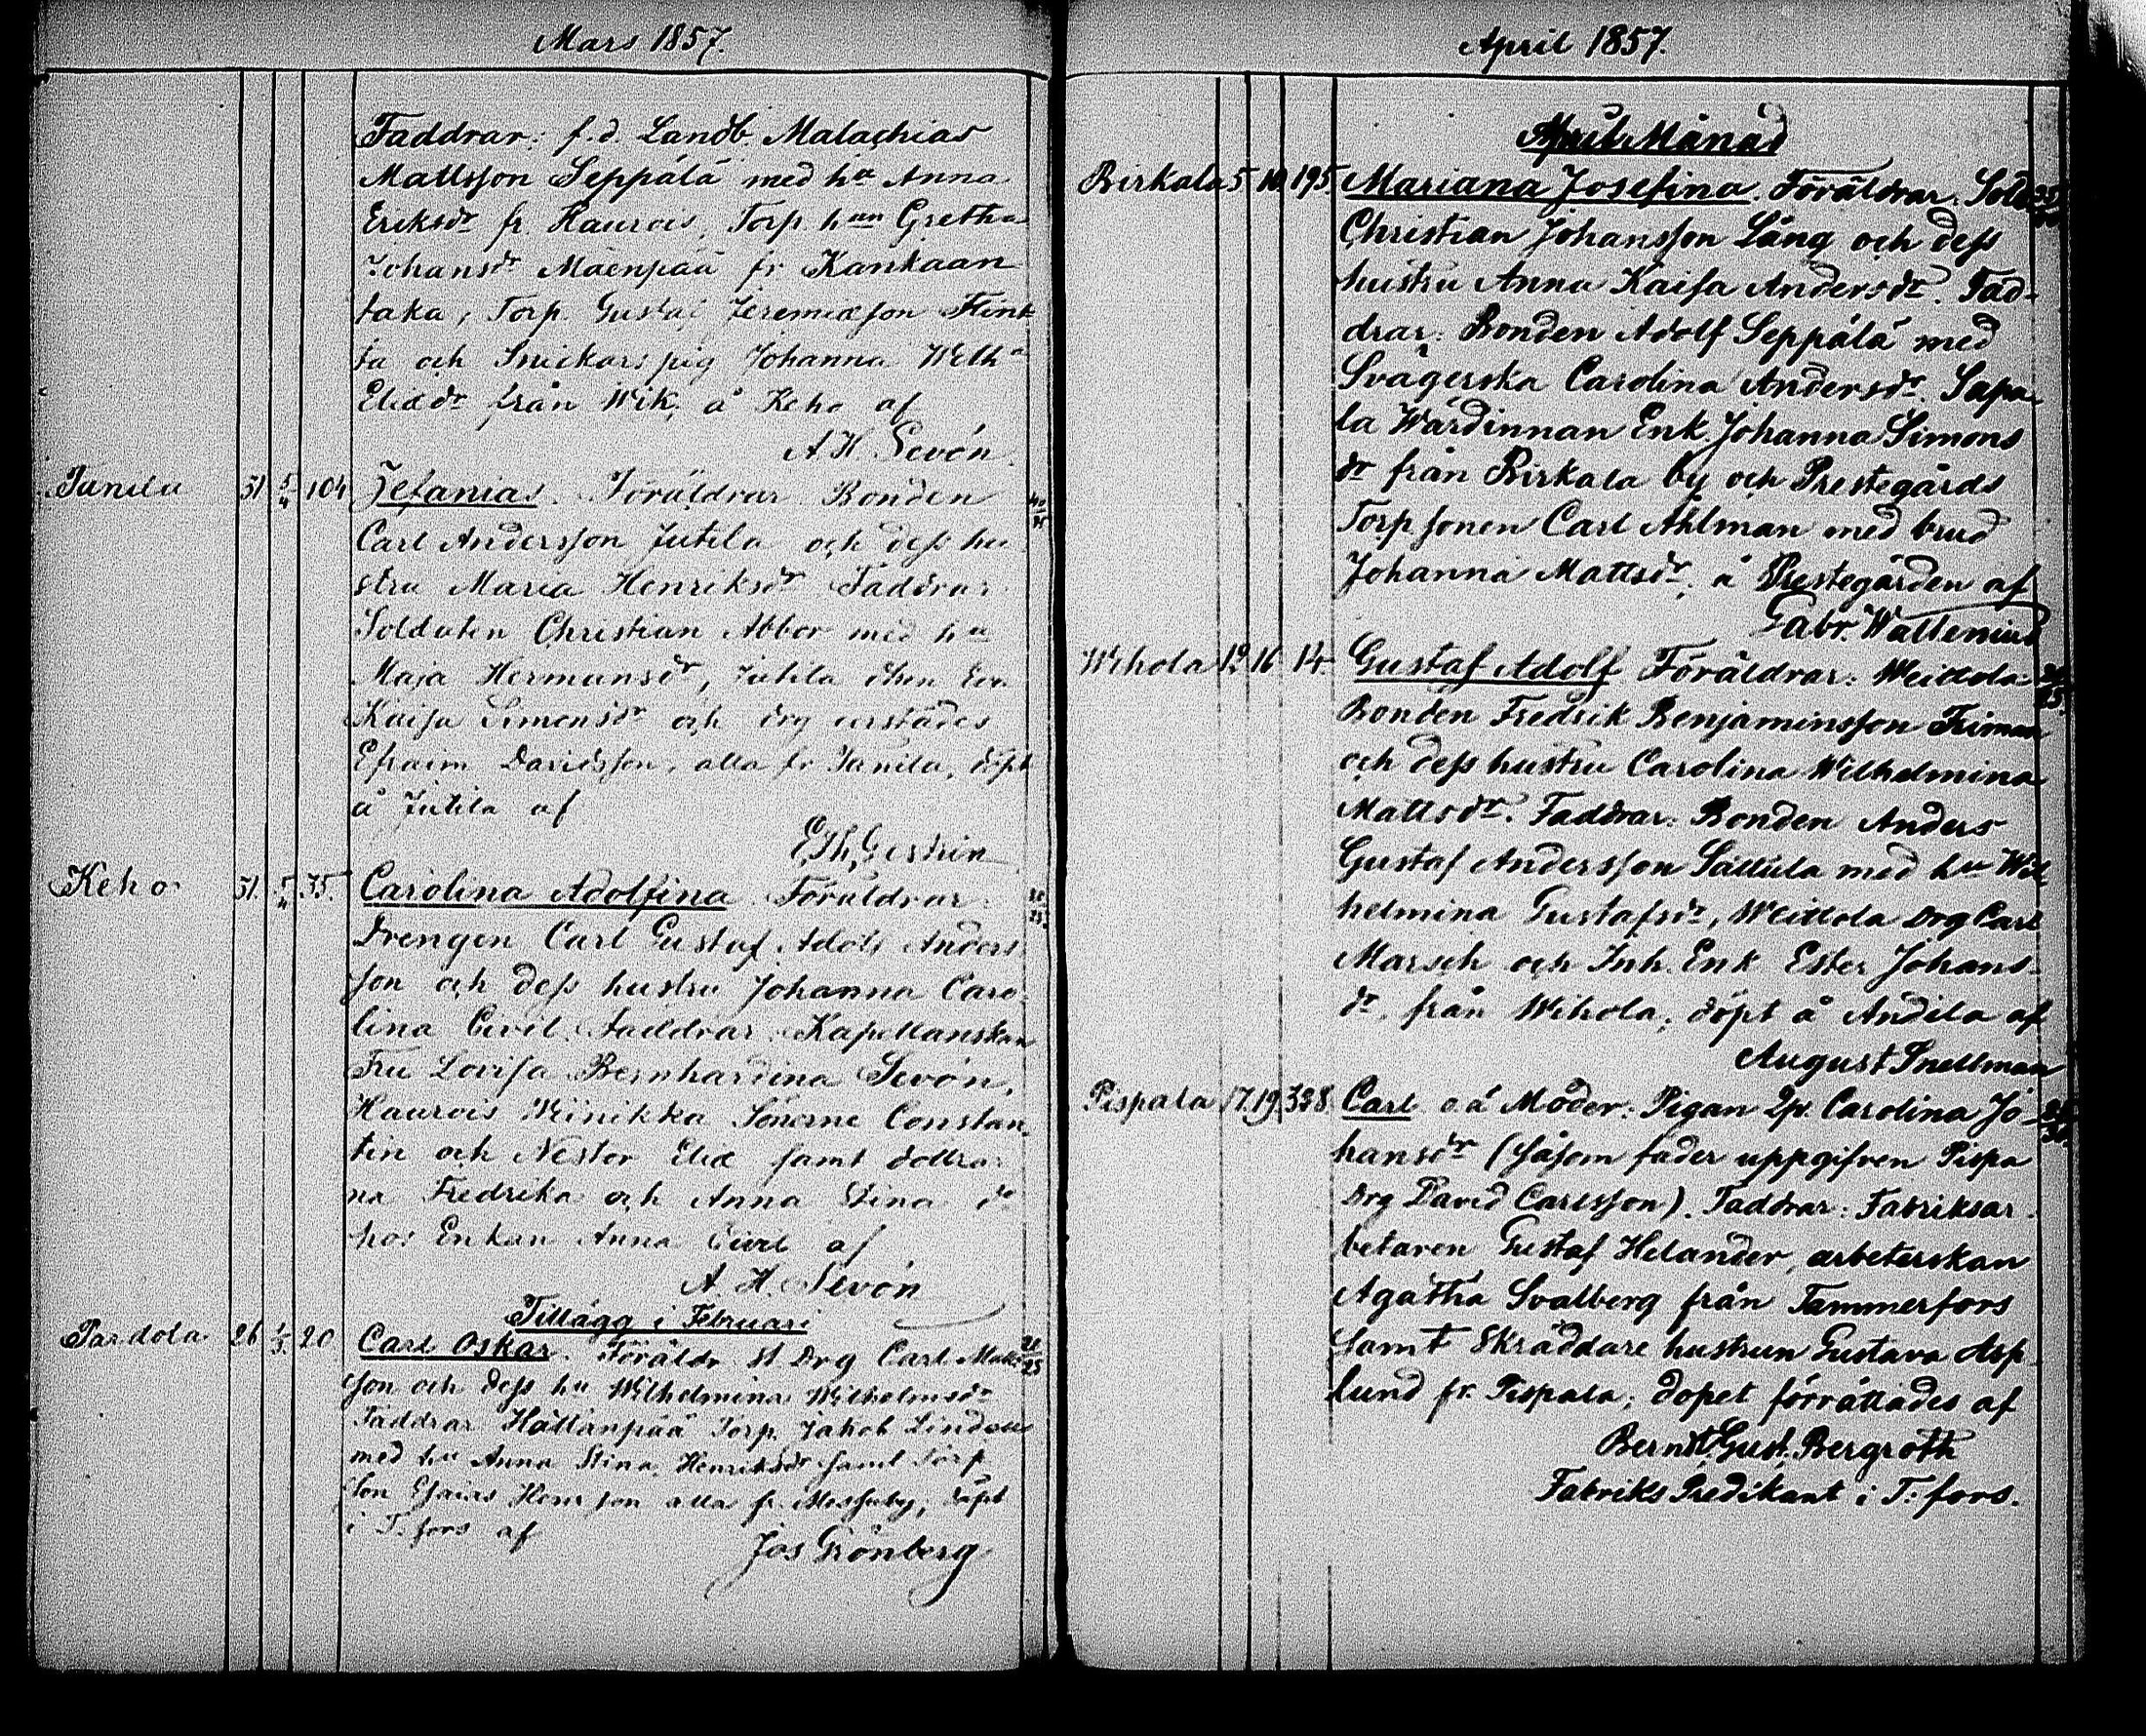 Mars 1857.
Faddrar: f.d. Landb. Malachias
Mattsson Seppälä med hu Anna
Eriksdr fr. Haurois, Torp. hun Gretha
Johansdr Mäenpää fr Kankaan
taka, Torp. Gustaf Jeremiæson Flink
ta och Snickars pig Johanna Welh
Eliædr från Wik, å Keho af
A. H. Sevón.
Tanila 31 5/4 104 Zefanias. Föräldrar Bonden
Carl Andersson Jutila och dess hu
stru Maria Henriksdr Faddrar
Soldaten Christian Abbor med hu
Maja Hermansdr, Jutila Eva
Kaisa Simonsdr och drg
Efraim Davidsson, alla fr Tanila, döpt
å Jutila af
E. Th. Gestrin
Keho 31. 5/4 35. Carolina Adolfina. Föräldrar:
Drengen Carl Gustaf Adolf Anders
son och dess hustru Johanna Caro
lina Civil. Faddrar: Kapellanskan
Fru Lovisa Bernhardina Sevón,
Haurois Weinikka Sönerne Constan
tin och Nestor Eliæ samt döttrar
na Fredrika och Anna Stina do
hos Enkan Anna Civil af
A. H. Sevón
Tillägg i Februari
Pardola 26 1/3 20 Carl Oskar. Föräldr. St Drg Carl Matts 21/23
son och dess hu Wilhelmina Wilhelmsdr
Faddrar Hattanpää Torp. Jakob
med hu Anna Stina Henriksdr samt Torp
Son Esaias Henrsson alla fr. Messuby, döpt
i T.fors af
Jos Grönberg
April 1857.
April Månad
Birkala 5 10 195. Mariana Josefina. Föräldrar: Sold
Christian Johansson Lång och dess
hustru Anna Kaisa Andersdr. Fad-
drar: Bonden Adolf Seppälä med
Svägerska Carolina Andersdr. Sapa
la Wärdinnan Enk. Johanna Simons
dr från Birkala by och Prestegårds
Torpsonen Carl Ahlman med brud
Johanna Mattsdr, å Prestegården af
Gabr. Wallenius
Wihola 12 16 14. Gustaf Adolf Föräldrar: Weittola
Bonden Fredrik Benjaminsson Friman
och dess hustru Carolina Wilhelmina
Mattsdr. Faddrar: Bonden Anders
Gustaf Andersson Sattula med hu Wil
helmina Gustafsdr, Weittola Drg Carl
Marsch och Inh. Enk Ester Johans-
dr, från Wihola; döpt å Andila af
August Snellman
Pispala 17. 19. 328. Carl o.ä Moder: Pigan Carolina Jo-
hansdr (såsom fader uppgifven Pispa
Drg David Carlsson). Faddrar: Fabriksar
betaren Gustaf Helander, arbeterskan
Agatha Svalberg från Tammerfors
samt Skräddare hustrun Gustava Asp
lund fr. Pispala; dopet förrättades af
Berndt Gust. Bergroth
Fabriks Predikant i T:fors.